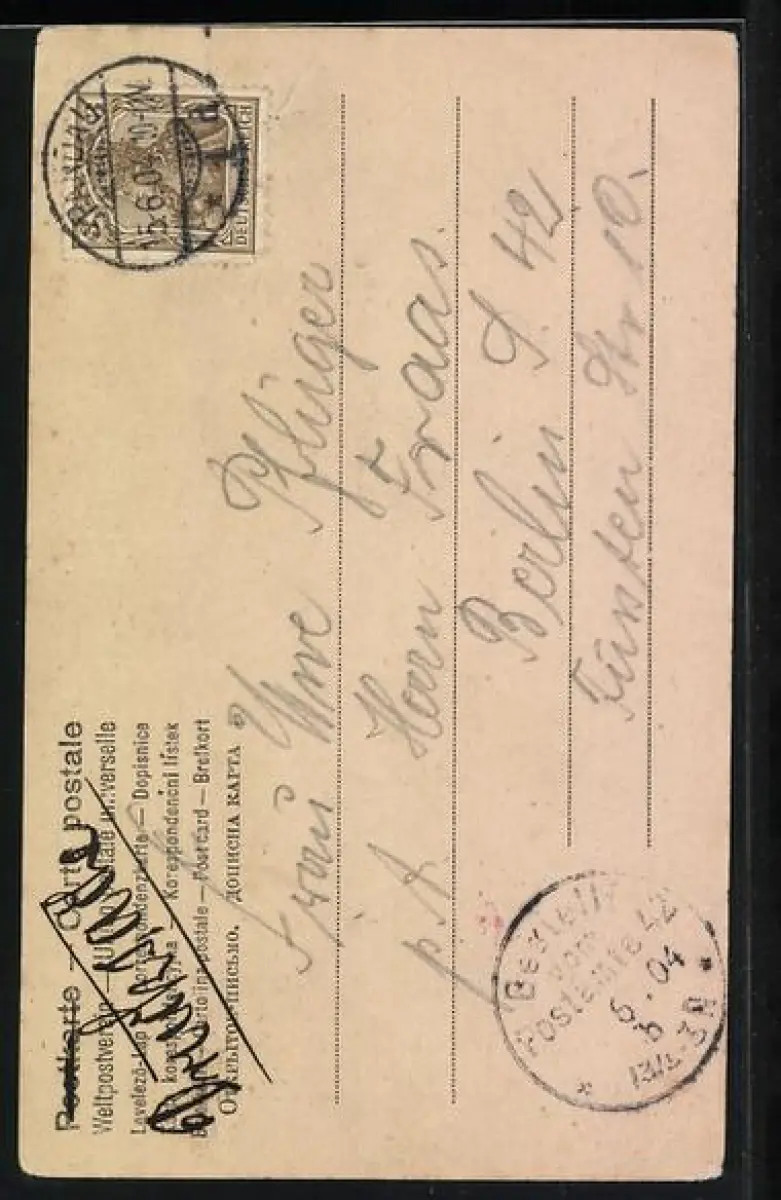 Postkarte — Carte postale
Weltpostverein — Union postale universelle
Levelező-Lap — Korrespondenzkarte — Dopisnice
— Korespondenční lístek
Cartolina postale — Post card — Brefkort
Открытое письмо. Дописна карта
Drucksache
DEUTSCHES REICH
15.6.04. 10-11N.
a
Frau Wwe Pflüger
p. A Herrn Fraas.
Berlin S. 42.
Fürsten Str 10.
Bestellt
vom
Postamte 42
6.04